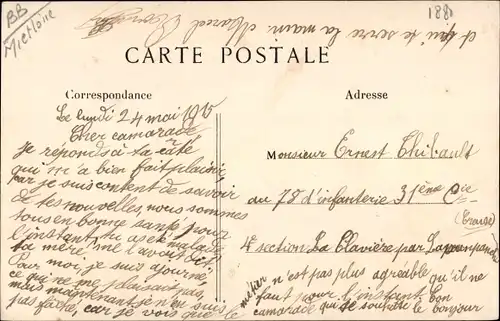 BB
Michone
1881
et qui te serre la main Marcel
CARTE POSTALE
Correspondance
Adresse
Le lundi 24 mai 1915
Cher camarade,
Je réponds à ta câté
qui m'a bien fait plaisir
car je suis content de savoir
de tes nouvelles, nous sommes
tous en bonne santé pour
l'instant, tu as malade
ta mère me l'avait dit
Pour moi, je suis ajourné
ce qui ne me plaisait pas
mais maintenant je n'en suis
pas faché, car je vois que le
métier n'est pas plus agréable qu'il ne
faut pour l'instant bon
camarade qui te souhaite le bonjour
Monsieur Ernest Thibault
au 78 d'infanterie 31ème Cie
4e section La Clavière par